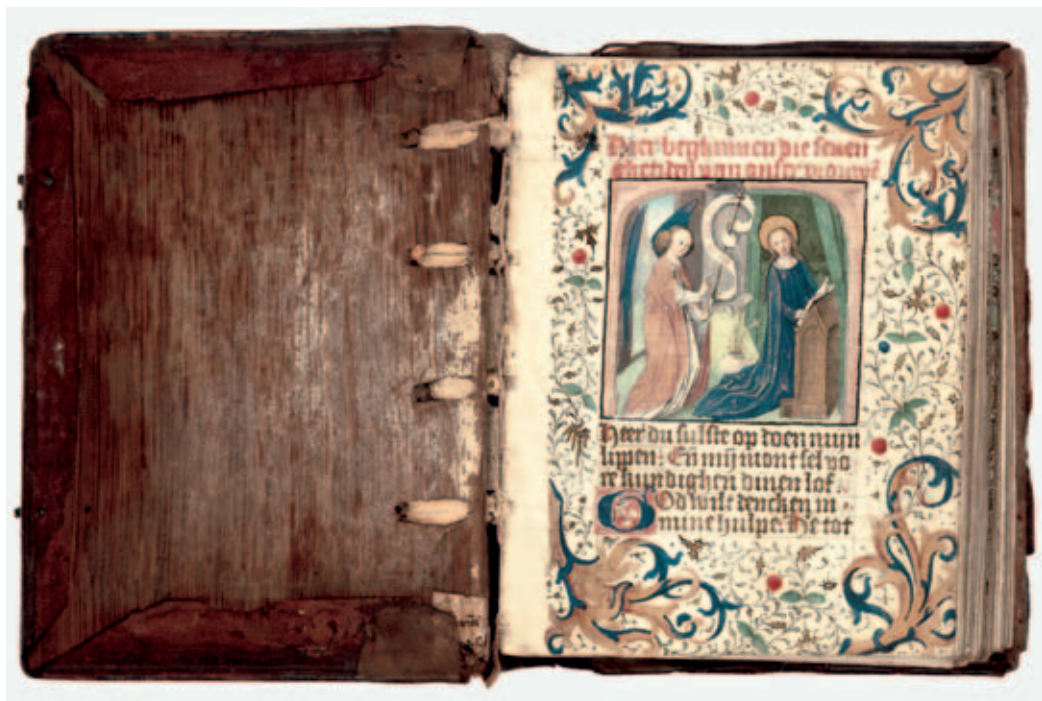 Hier beghinnen die seven
ghetiden van onser vrouwẽ
Heer du sulste op doen mijn
lippen. En mijn mont sel vo
re kundighen dinen lof.
God wilt dencken in
mine hulpe. He tot